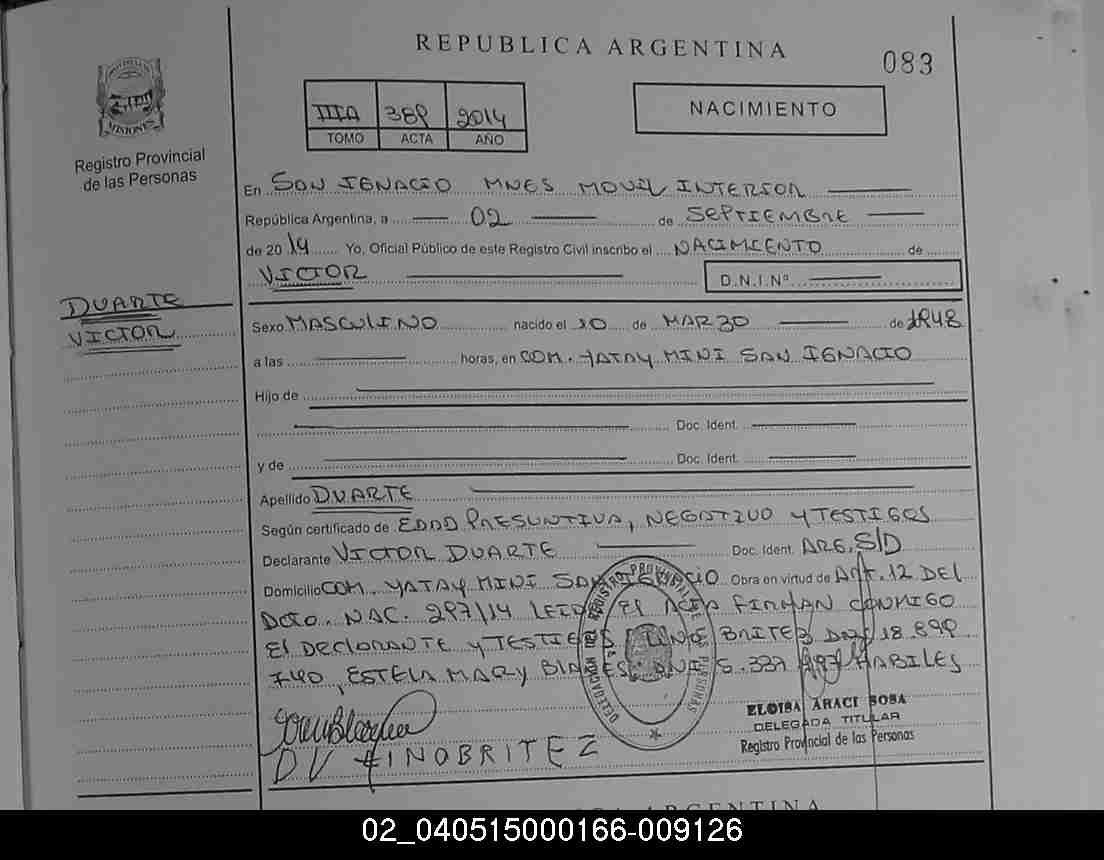 REPUBLICA ARGENTINA
083
PROVINCIA DE
MISIONES
Registro Provincial
de las Personas
IIIA 389 2014
TOMO ACTA AÑO
NACIMIENTO
En SAN IGNACIO MNES MOVIL INTERIOR
República Argentina, a 02 de SEPTIEMBRE
de 2014 Yo, Oficial Público de este Registro Civil inscribo el NACIMIENTO de
VICTOR D.N.I.Nº
DUARTE
VICTOR
Sexo MASCULINO nacido el 10 de MARZO de 1948
a las horas, en COM. YATAY MINI SAN IGNACIO
Hijo de
Doc. Ident.
y de Doc. Ident.
Apellido DUARTE
Según certificado de EDAD PRESUNTIVA, NEGATIVO Y TESTIGOS
Declarante VICTOR DUARTE Doc. Ident. ARG. S/D
Domicilio COM. YATAY MINI SAN IGNACIO Obra en virtud de ART. 12 DEL
DCTO. NAC. 297/14 LEIDA EL ACTA FIRMAN CONMIGO
El DECLARANTE Y TESTIGOS LINO BRITEZ DNI 18.899
740, ESTELA MARY BLANES DNI 5.337 HABILES
DELEGACION DEL REGISTRO PROVINCIAL DE LAS PERSONAS
ELOISA ARACI SOSA
DELEGADA TITULAR
Registro Provincial de las Personas
DV LINOBRITEZ
ARGENTINA
02_040515000166-009126